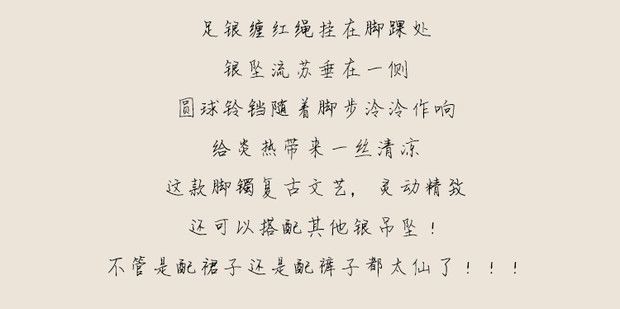 足银缠红绳挂在脚踝处
银坠流苏垂在一侧
圆球铃铛随着脚步泠泠作响
给炎热带来一丝清凉
这款脚镯复古文艺，灵动精致
还可以搭配其他银吊坠！
不管是配裙子还是配裤子都太仙了！！！